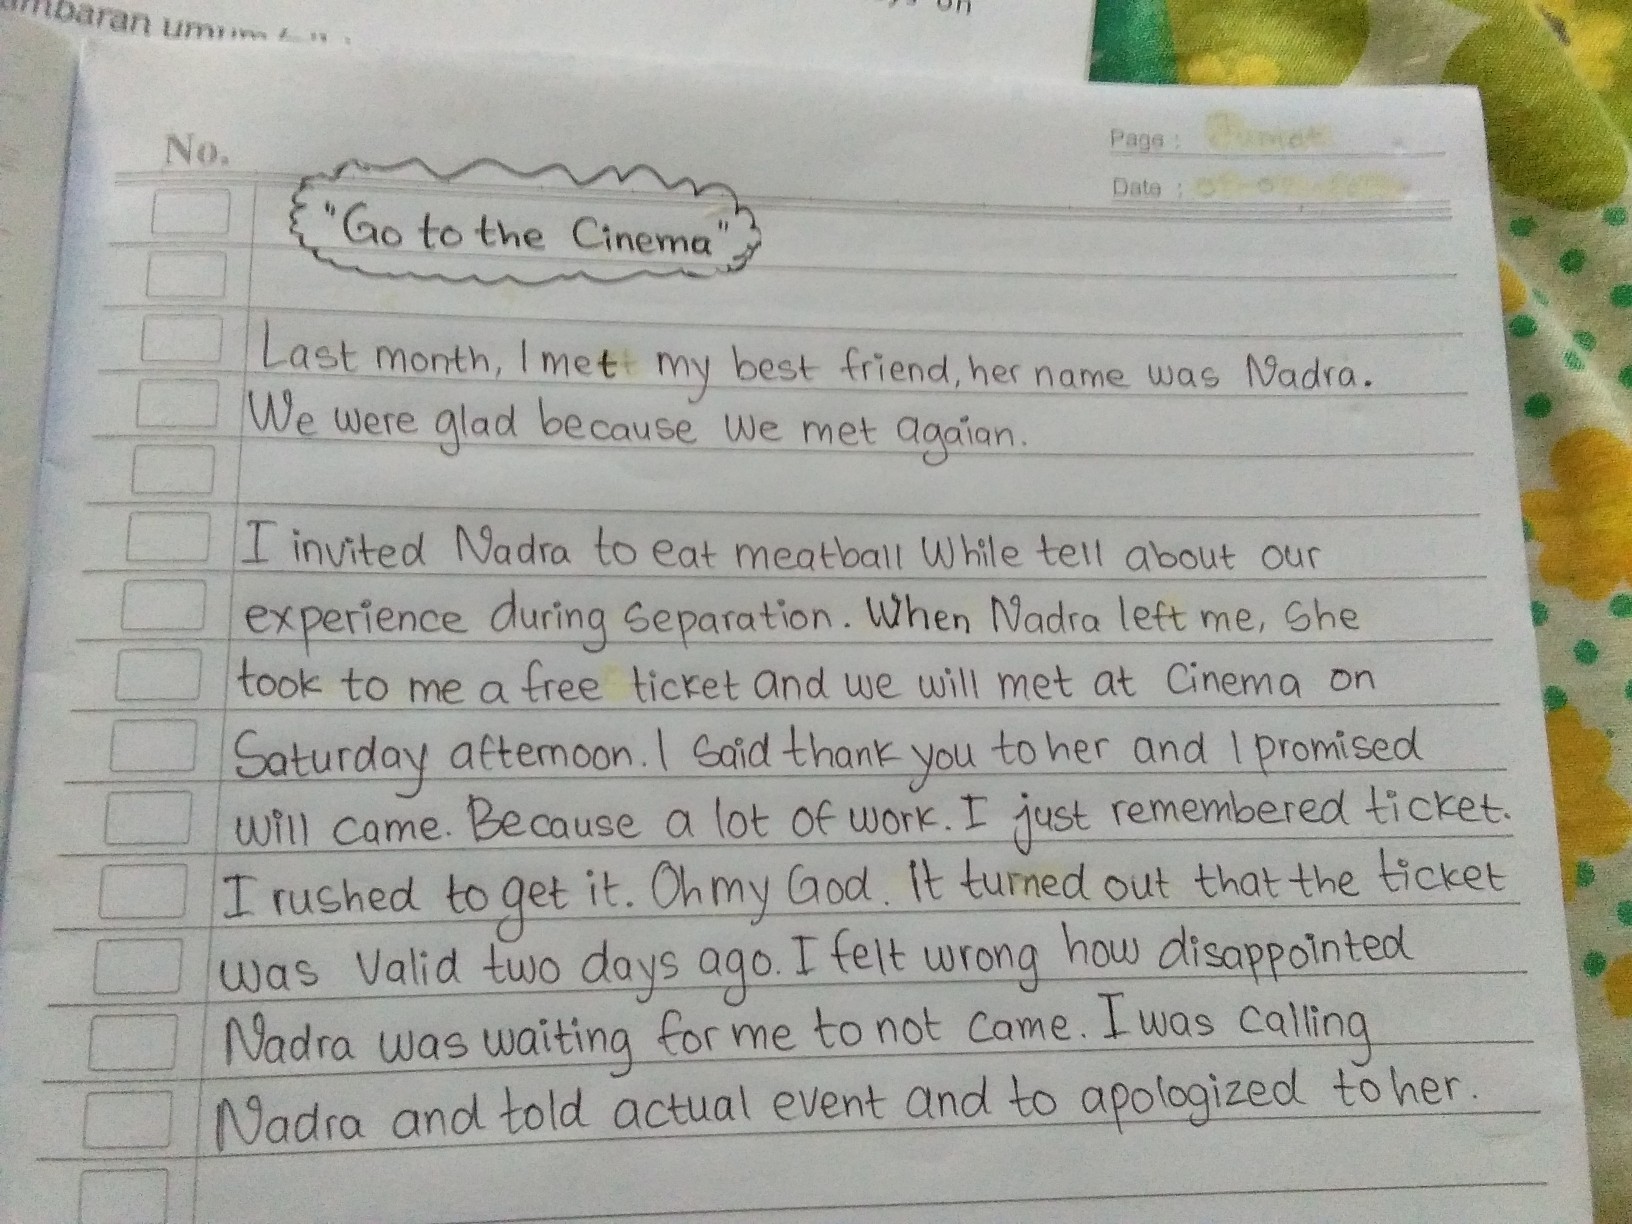 umum
on
No.
Page :
Date :
"Go to the Cinema"
Last month, I met my best friend, her name was Nadra.
We were glad because we met agaian.
I invited Nadra to eat meatball While tell about our
experience during separation. When Nadra left me, she
took to me a free ticket and we will met at Cinema on
Saturday afternoon. I said thank you to her and I promised
will came. Because a lot of work. I just remembered ticket.
I rushed to get it. Oh my God. It turned out that the ticket
was Valid two days ago. I felt wrong how disappointed
Nadra was waiting for me to not came. I was calling
Nadra and told actual event and to apologized to her.